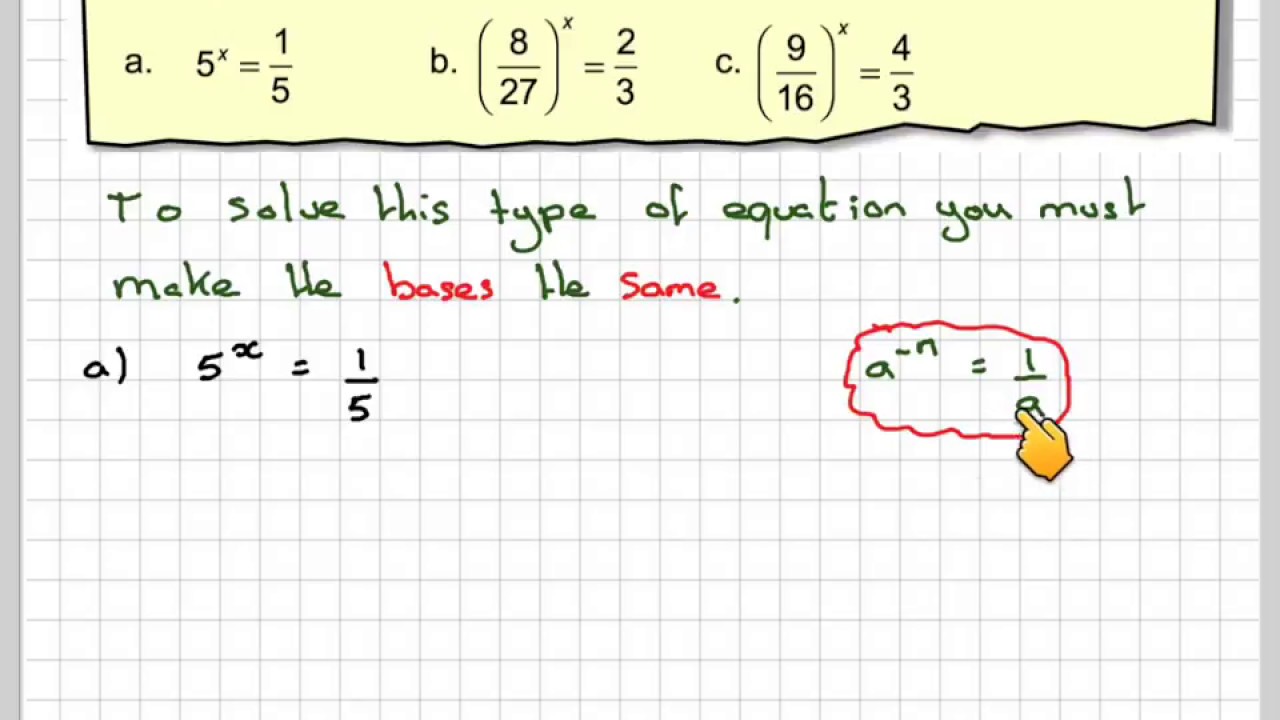 a. 5ˣ = 1/5 b. (8/27)ˣ = 2/3 c. (9/16)ˣ = 4/3
To solve this type of equation you must
make the bases the same.
a) 5ˣ = 1/5 a⁻ⁿ = 1/a